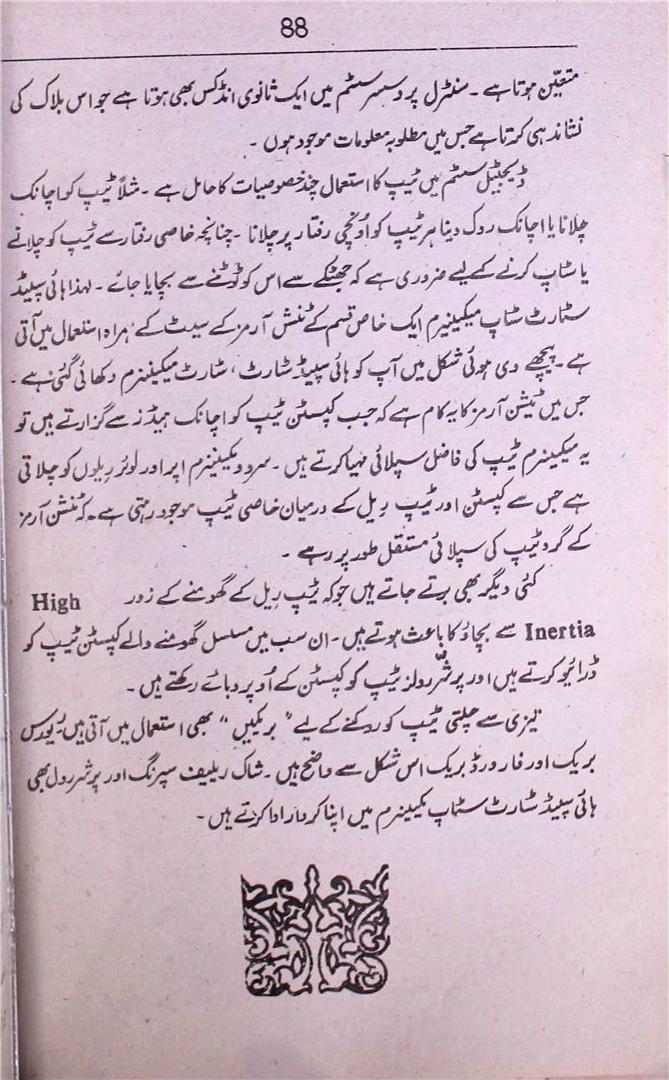 88
متعیّن ہوتا ہے ۔ سنٹرل پروسسر سسٹم میں ایک ثانوی انڈکس بھی ہوتا ہے جو اس بلاک کی
نشاندہی کرتا ہے جس میں مطلوبہ معلومات موجود ہوں ۔
ڈیجیٹل سسٹم میں ٹیپ کا استعمال چند خصوصیات کا حامل ہے ۔ مثلاً ٹیپ کو اچانک
چلانا یا اچانک روک دینا ہر ٹیپ کو اُونچی رفتار پر چلانا ۔ چنانچہ خاصی رفتار سے ٹیپ کو چلانے
یا سٹاپ کرنے کے لیے ضروری ہے کہ جھٹکے سے اس کو ٹوٹنے سے بچایا جائے ۔ لہذا ہائی سپیڈ
سٹارٹ سٹاپ میکینیزم ایک خاص قسم کے ٹنشن آرمز کے سیٹ کے ہمراہ استعمال میں آتی
ہے ۔ پیچھے دی ہوئی شکل میں آپ کو ہائی سپیڈ سٹارٹ ، سٹارٹ میکینزم دکھائی گئی ہے ۔
جس میں ٹینشن آرمز کا یہ کام ہے کہ جب کپسٹن ٹیپ کو اچانک ہیڈز سے گزارتے ہیں تو
یہ میکینرم ٹیپ کی فاضل سپلائی مہیا کرتے ہیں ۔ سرو میکینیزم اپر اور لوئر ریلوں کو چلاتی
ہے جس سے کپسٹن اور ٹیپ ریل کے درمیان خاصی ٹیپ موجود رہتی ہے ۔ کہ ٹنشن آرمز
کے گرد ٹیپ کی سپلائی مستقل طور پر رہے ۔
کئی دیگر بھی برتے جاتے ہیں جو کہ ٹیپ ریل کے گھومنے کے زور High
Inertia سے بچاؤ کا باعث ہوتے ہیں ۔ ان سب میں مسلسل گھومنے والے کپسٹن ٹیپ کو
ڈرائیو کرتے ہیں اور پرشّر رولز ٹیپ کو کپسٹن کے اُوپر دبائے رکھتے ہیں ۔
تیزی سے چلتی ٹیپ کو روکنے کے لیے ” بریکیں “ بھی استعمال میں آتی ہیں ریورس
بریک اور فارورڈ بریک اس شکل سے واضح ہیں ۔ شاک ریلیف سپرنگ اور پرشر رول بھی
ہائی سپیڈ سٹارٹ سٹاپ میکینرم میں اپنا کردار ادا کرتے ہیں ۔